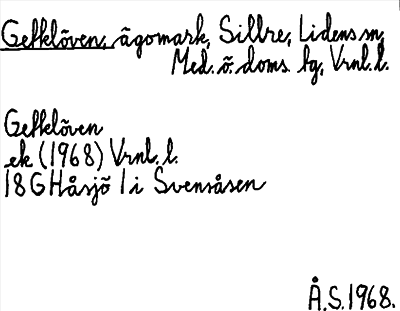 Gefklöven, ägomark, Sillre, Lidens sn,
Med. ö. doms. tg, Vrnl. l.
Gefklöven
ek (1968) Vrnl. l.
18 G Håsjö 1 i Svensåsen
Å.S. 1968.